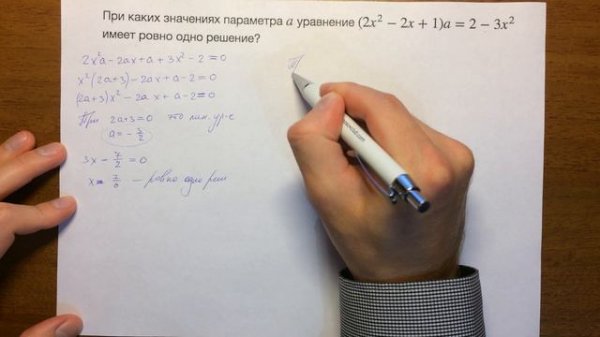 При каких значениях параметра a уравнение (2x² − 2x + 1)a = 2 − 3x²
имеет ровно одно решение?
2x²a − 2ax + a + 3x² − 2 = 0
x²(2a+3) − 2ax + a − 2 = 0
(2a+3)x² − 2ax + a − 2 = 0
При 2a+3=0 это лин. ур-е
a = − 3/2
3x − 7/2 = 0
x = 7/6 — ровно одно реш